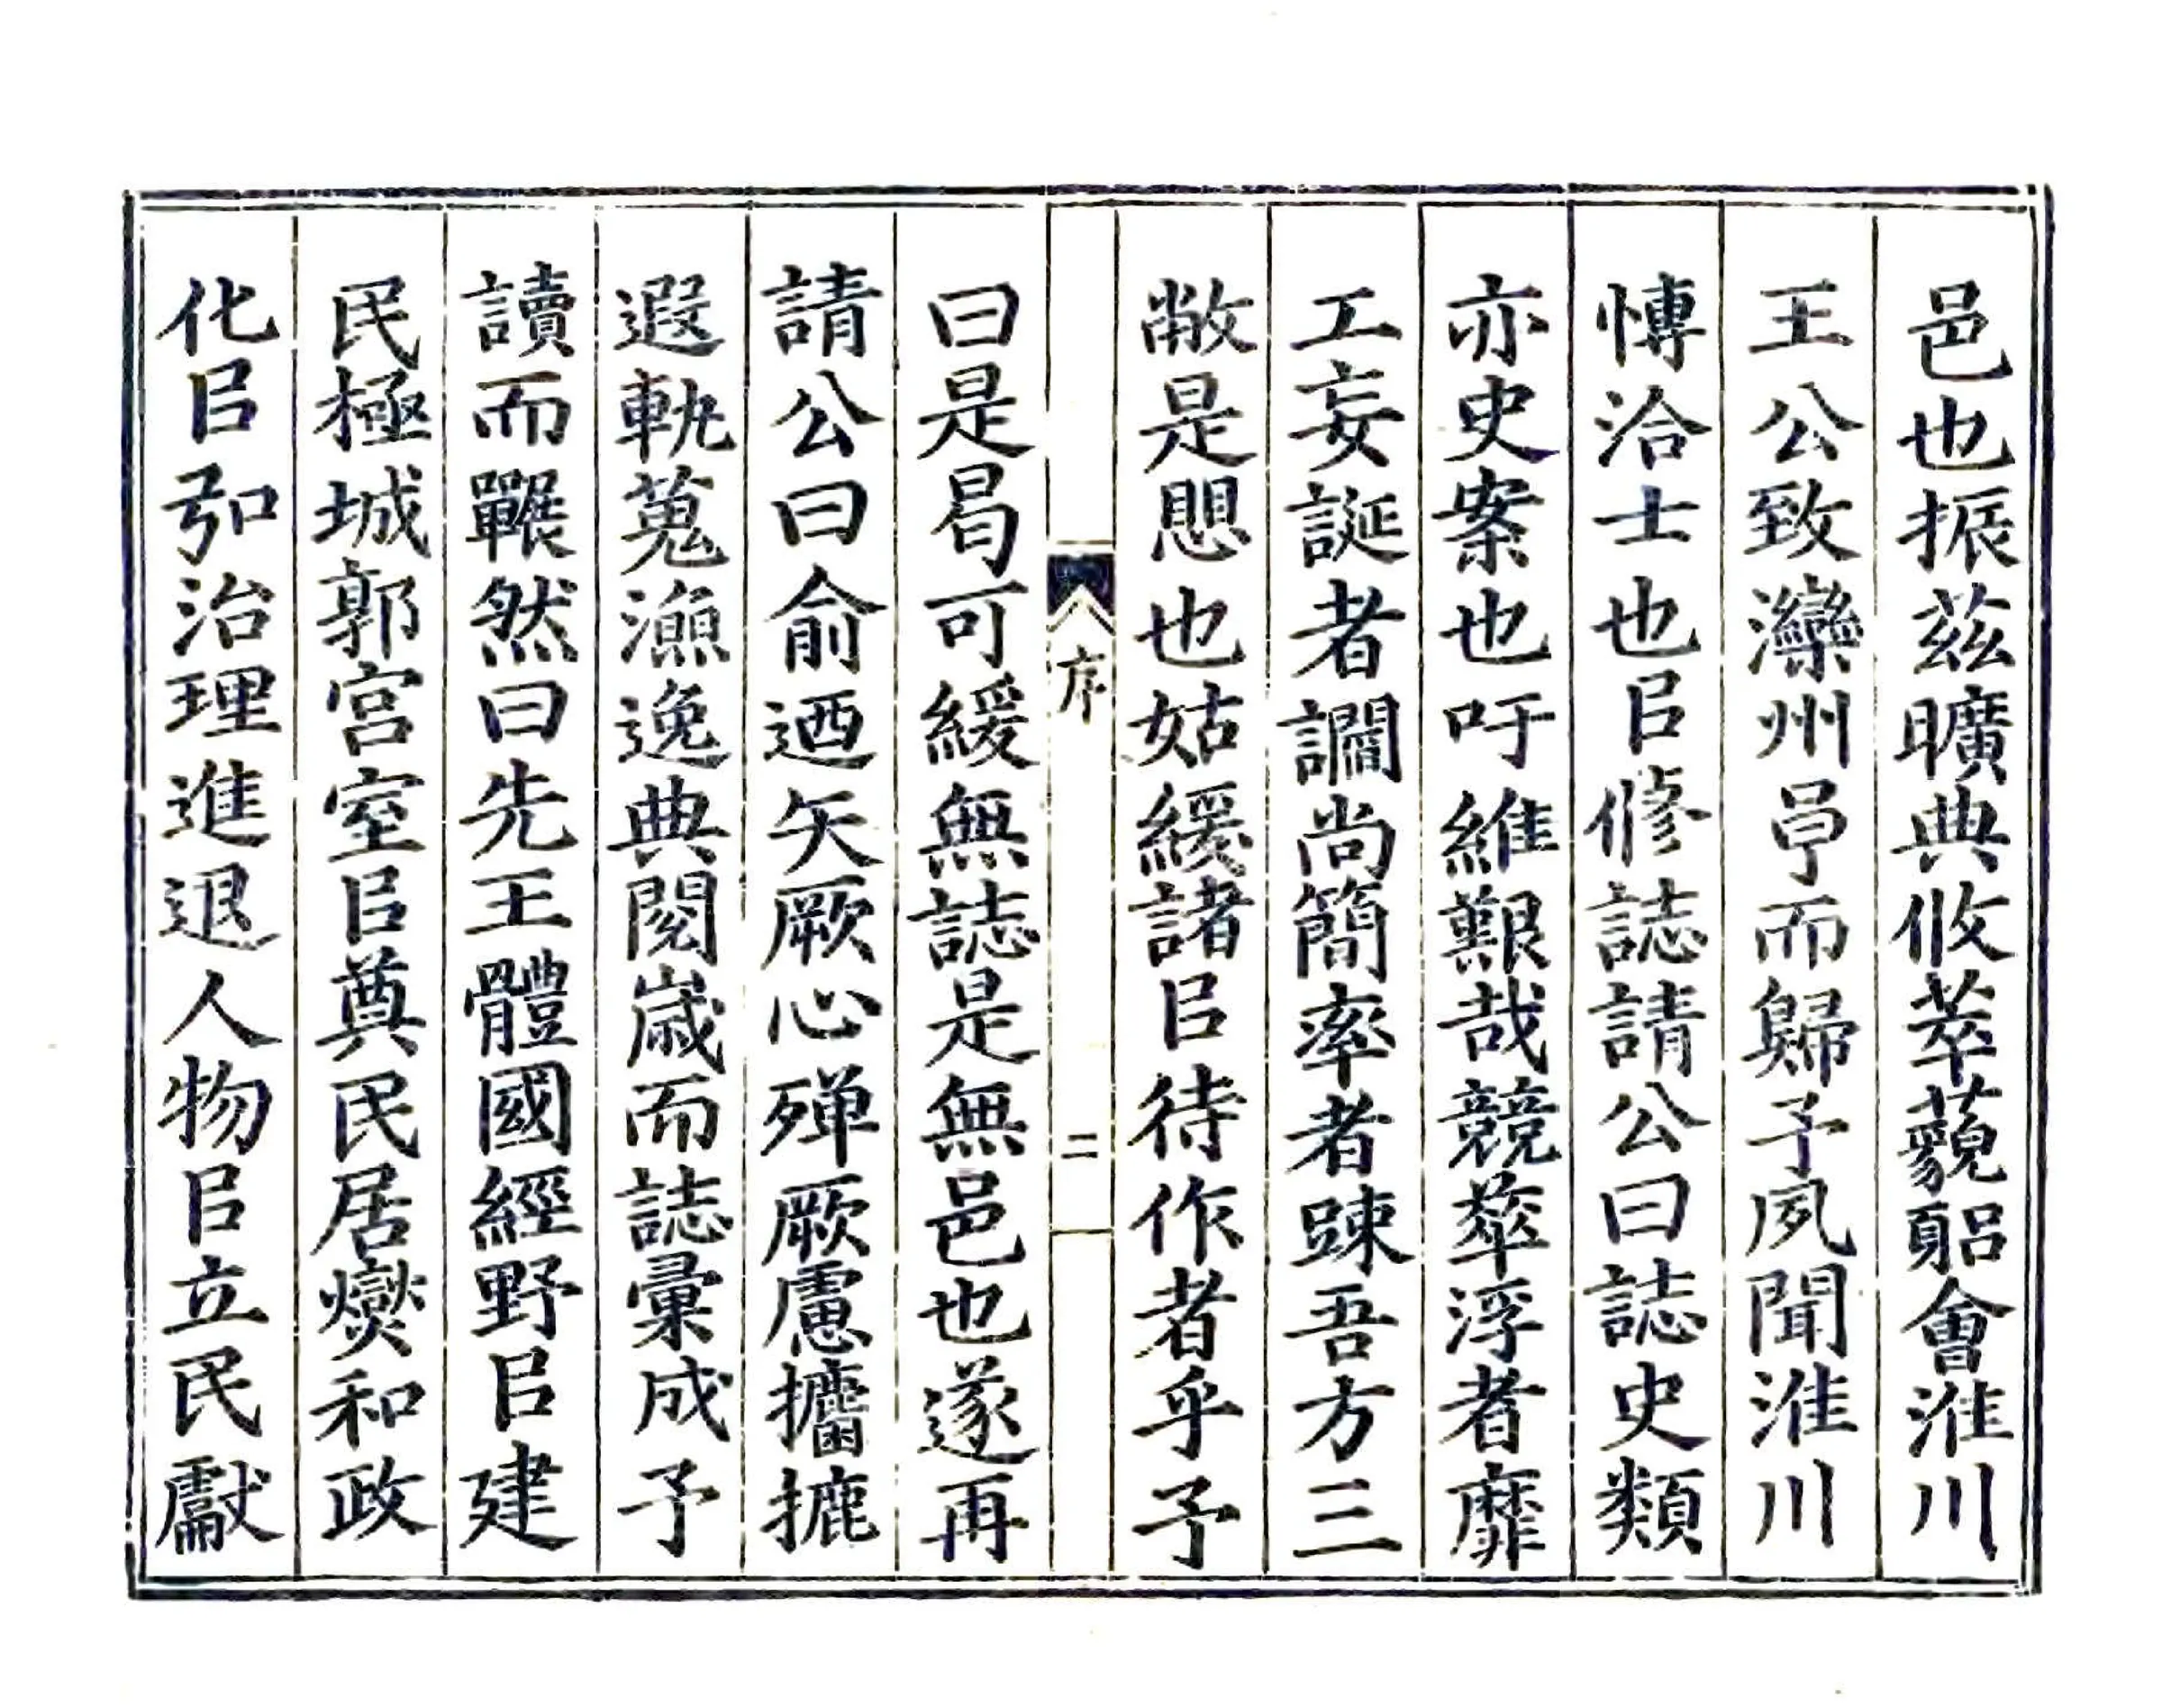 邑也振兹曠典攸萃藐貂會淮川
王公致灤州㫗而歸予夙聞淮川
愽洽士也㠯修誌請公曰誌史類
亦史案也吁維艱哉競萃浮者靡
工妄誕者讕尚簡率者踈吾方三
敝是思也姑緩諸㠯待作者乎予
曰是曷可緩無誌是無邑也遂再
請公曰俞迺矢厥心殫厥慮攟摭
遐軌蒐漁逸典閱歲而誌彙成予
讀而囅然曰先王體國經野㠯建
民極城郭宮室㠯奠民居爕和政
化㠯弘治理進退人物㠯立民獻
序
二